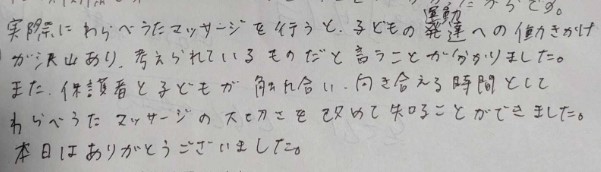 からです。
実際にわらべうたマッサージを行うと、子どもの運動発達への働きかけ
が沢山あり、考えられているものだと言うことが分かりました。
また、保護者と子どもが触れ合い、向き合える時間として
わらべうたマッサージの大切さを改めて知ることができました。
本日はありがとうございました。